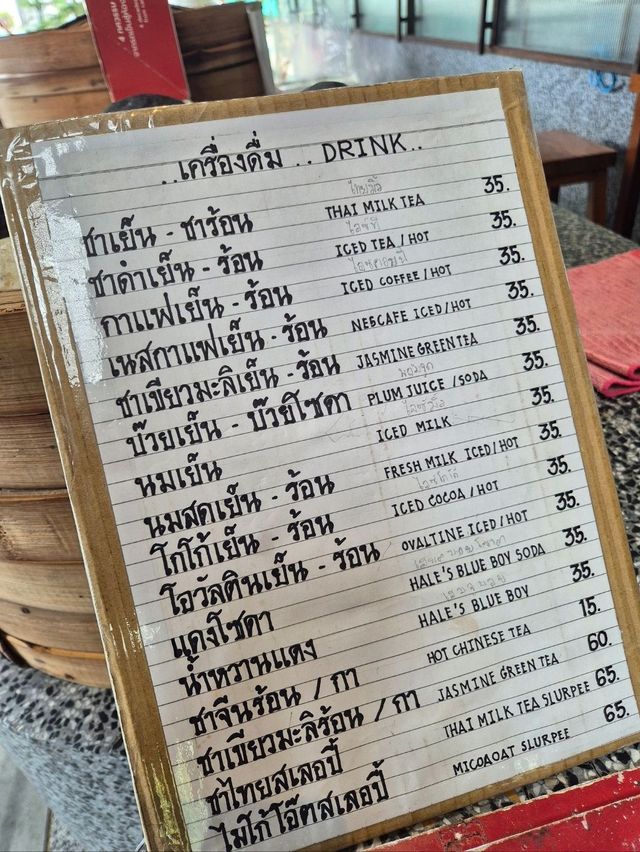 ..เครื่องดื่ม .. DRINK..
ชาเย็น - ชาร้อน THAI MILK TEA 35.
ชาดำเย็น - ร้อน ICED TEA / HOT 35.
กาแฟเย็น - ร้อน ICED COFFEE / HOT 35.
เนสกาแฟเย็น - ร้อน NESCAFE ICED / HOT 35.
ชาเขียวมะลิเย็น - ร้อน JASMINE GREEN TEA 35.
บ๊วยเย็น - บ๊วยโซดา PLUM JUICE / SODA 35.
นมเย็น ICED MILK 35.
นมสดเย็น - ร้อน FRESH MILK ICED / HOT 35.
โกโก้เย็น - ร้อน ICED COCOA / HOT 35.
โอวัลตินเย็น - ร้อน OVALTINE ICED / HOT 35.
แดงโซดา HALE'S BLUE BOY SODA 35.
น้ำหวานแดง HALE'S BLUE BOY 35.
ชาจีนร้อน / กา HOT CHINESE TEA 15.
ชาเขียวมะลิร้อน / กา JASMINE GREEN TEA 60.
ชาไทยสเลอปี้ THAI MILK TEA SLURPEE 65.
ไมโก้โอ๊ตสเลอปี้ MICOAOAT SLURPEE 65.